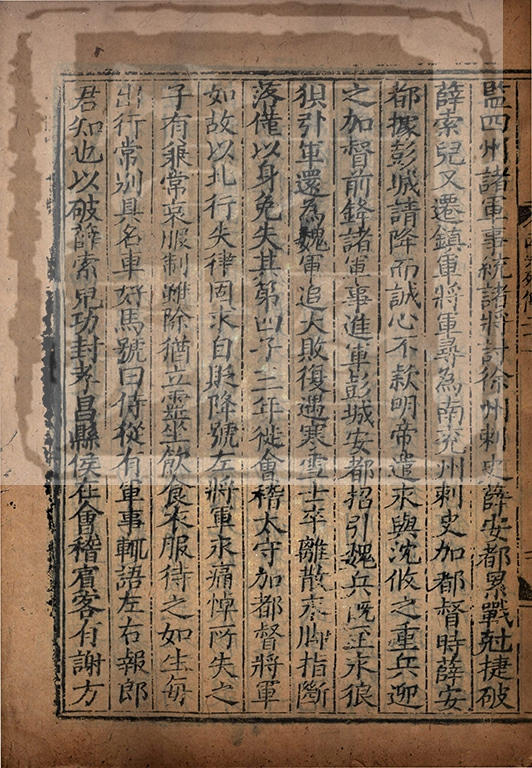 監四州諸軍事統諸將討徐州刺史薛安都累戰尅捷破
薛索兒又遷鎮軍將軍尋為南兗州刺史加都督時薛安
都據彭城請降而誠心不款明帝遣永與沈攸之重兵迎
之加督前鋒諸軍事進軍彭城安都招引魏兵既至永狼
狽引軍還為魏軍追大敗復遇寒雪士卒離散永脚指斷
落僅以身免失其第四子三年徙會稽太守加都督將軍
如故以北行失律固求自貶降號左將軍永痛悼所失之
子有兼常哀服制雖除猶立靈坐飲食衣服待之如生每
出行常別具名車好馬號曰侍從有軍事輒語左右報郎
君知也以破薛索兒功封孝昌縣侯在會稽賓客有謝方